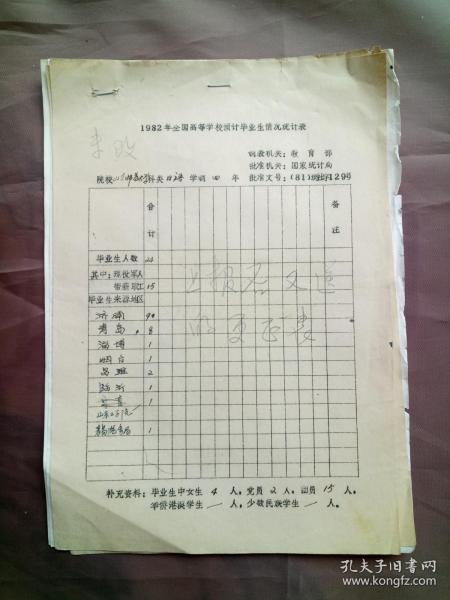 1982年全国高等学校预计毕业生情况统计表
未改
制表机关：教育部
批准机关：国家统计局
院校 科类日语 学制四年 批准文号：(81)
合计
备注
毕业生人数 24
其中：现役军人
带薪职工 15
毕业生来源地区
上报后又送
的更正表
济南 9
青岛 8
淄博 1
烟台 1
昌潍 2
临沂 1
1
1
补充资料：毕业生中女生4人，党员2人，团员15人，
华侨港澳学生一人，少数民族学生一人。
孔夫子旧书网
www.kongfz.com